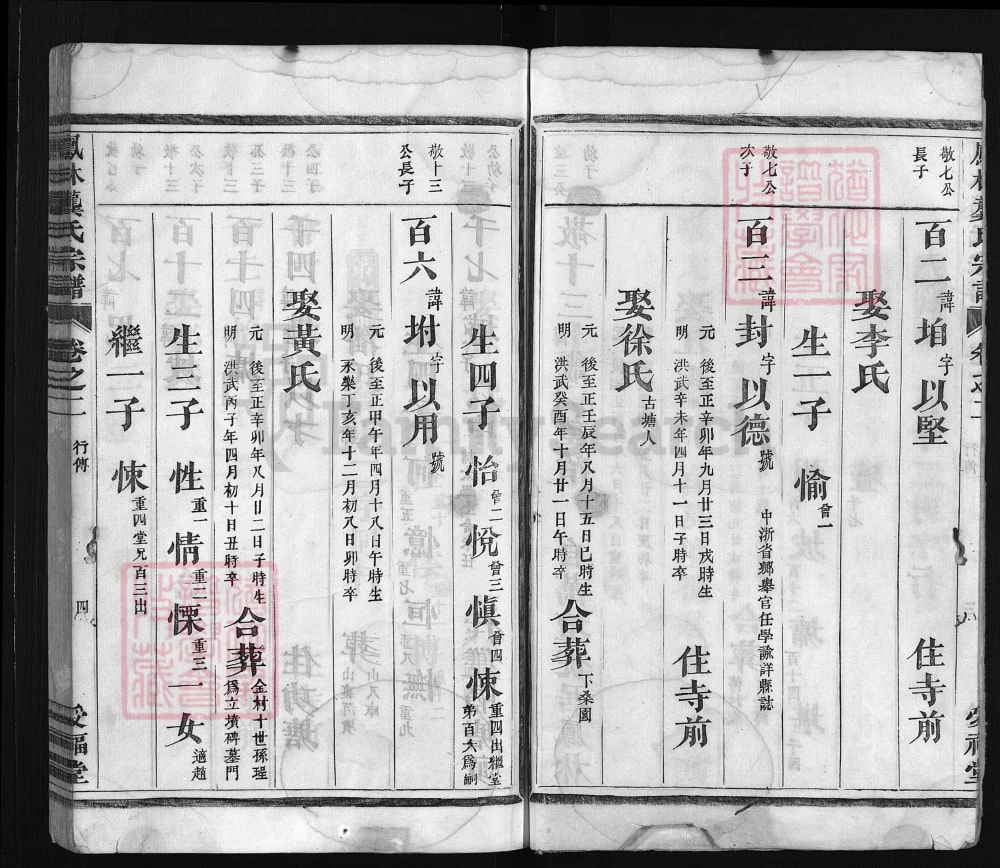 敬七公
長子
百二 諱 垍 字 以堅 住寺前
娶李氏
生一子 愉 曾一
敬七公
次子
百三 諱 封 字 以德 號 中浙省鄉舉官任學諭詳縣誌
元 後至正辛卯年九月廿三日戌時生 住寺前
明 洪武辛未年四月十一日子時卒
娶徐氏 古塘人
元 後至正壬辰年八月十五日巳時生 合葬 下桑園
明 洪武癸酉年十月廿一日午時卒
鳳林龔氏宗譜 卷之二 行傳 三 受福堂
生四子 怡 曾二 悅 曾三 愼 曾四 悚 重四出繼堂弟百六爲嗣
敬十三
公長子
百六 諱 坿 字 以用 號
元 後至正甲午年四月十八日午時生
明 永樂丁亥年十二月初八日卯時卒
娶黃氏
元 後至正辛卯年八月廿二日子時生 合葬 金村十世孫瑆
明 洪武丙子年四月初十日丑時卒 爲立墳碑墓門
生三子 性 重一 情 重二 慄 重三 一女 適趙
繼一子 悚 重四堂兄百三出
鳳林龔氏宗譜 卷之二 行傳 四 受福堂